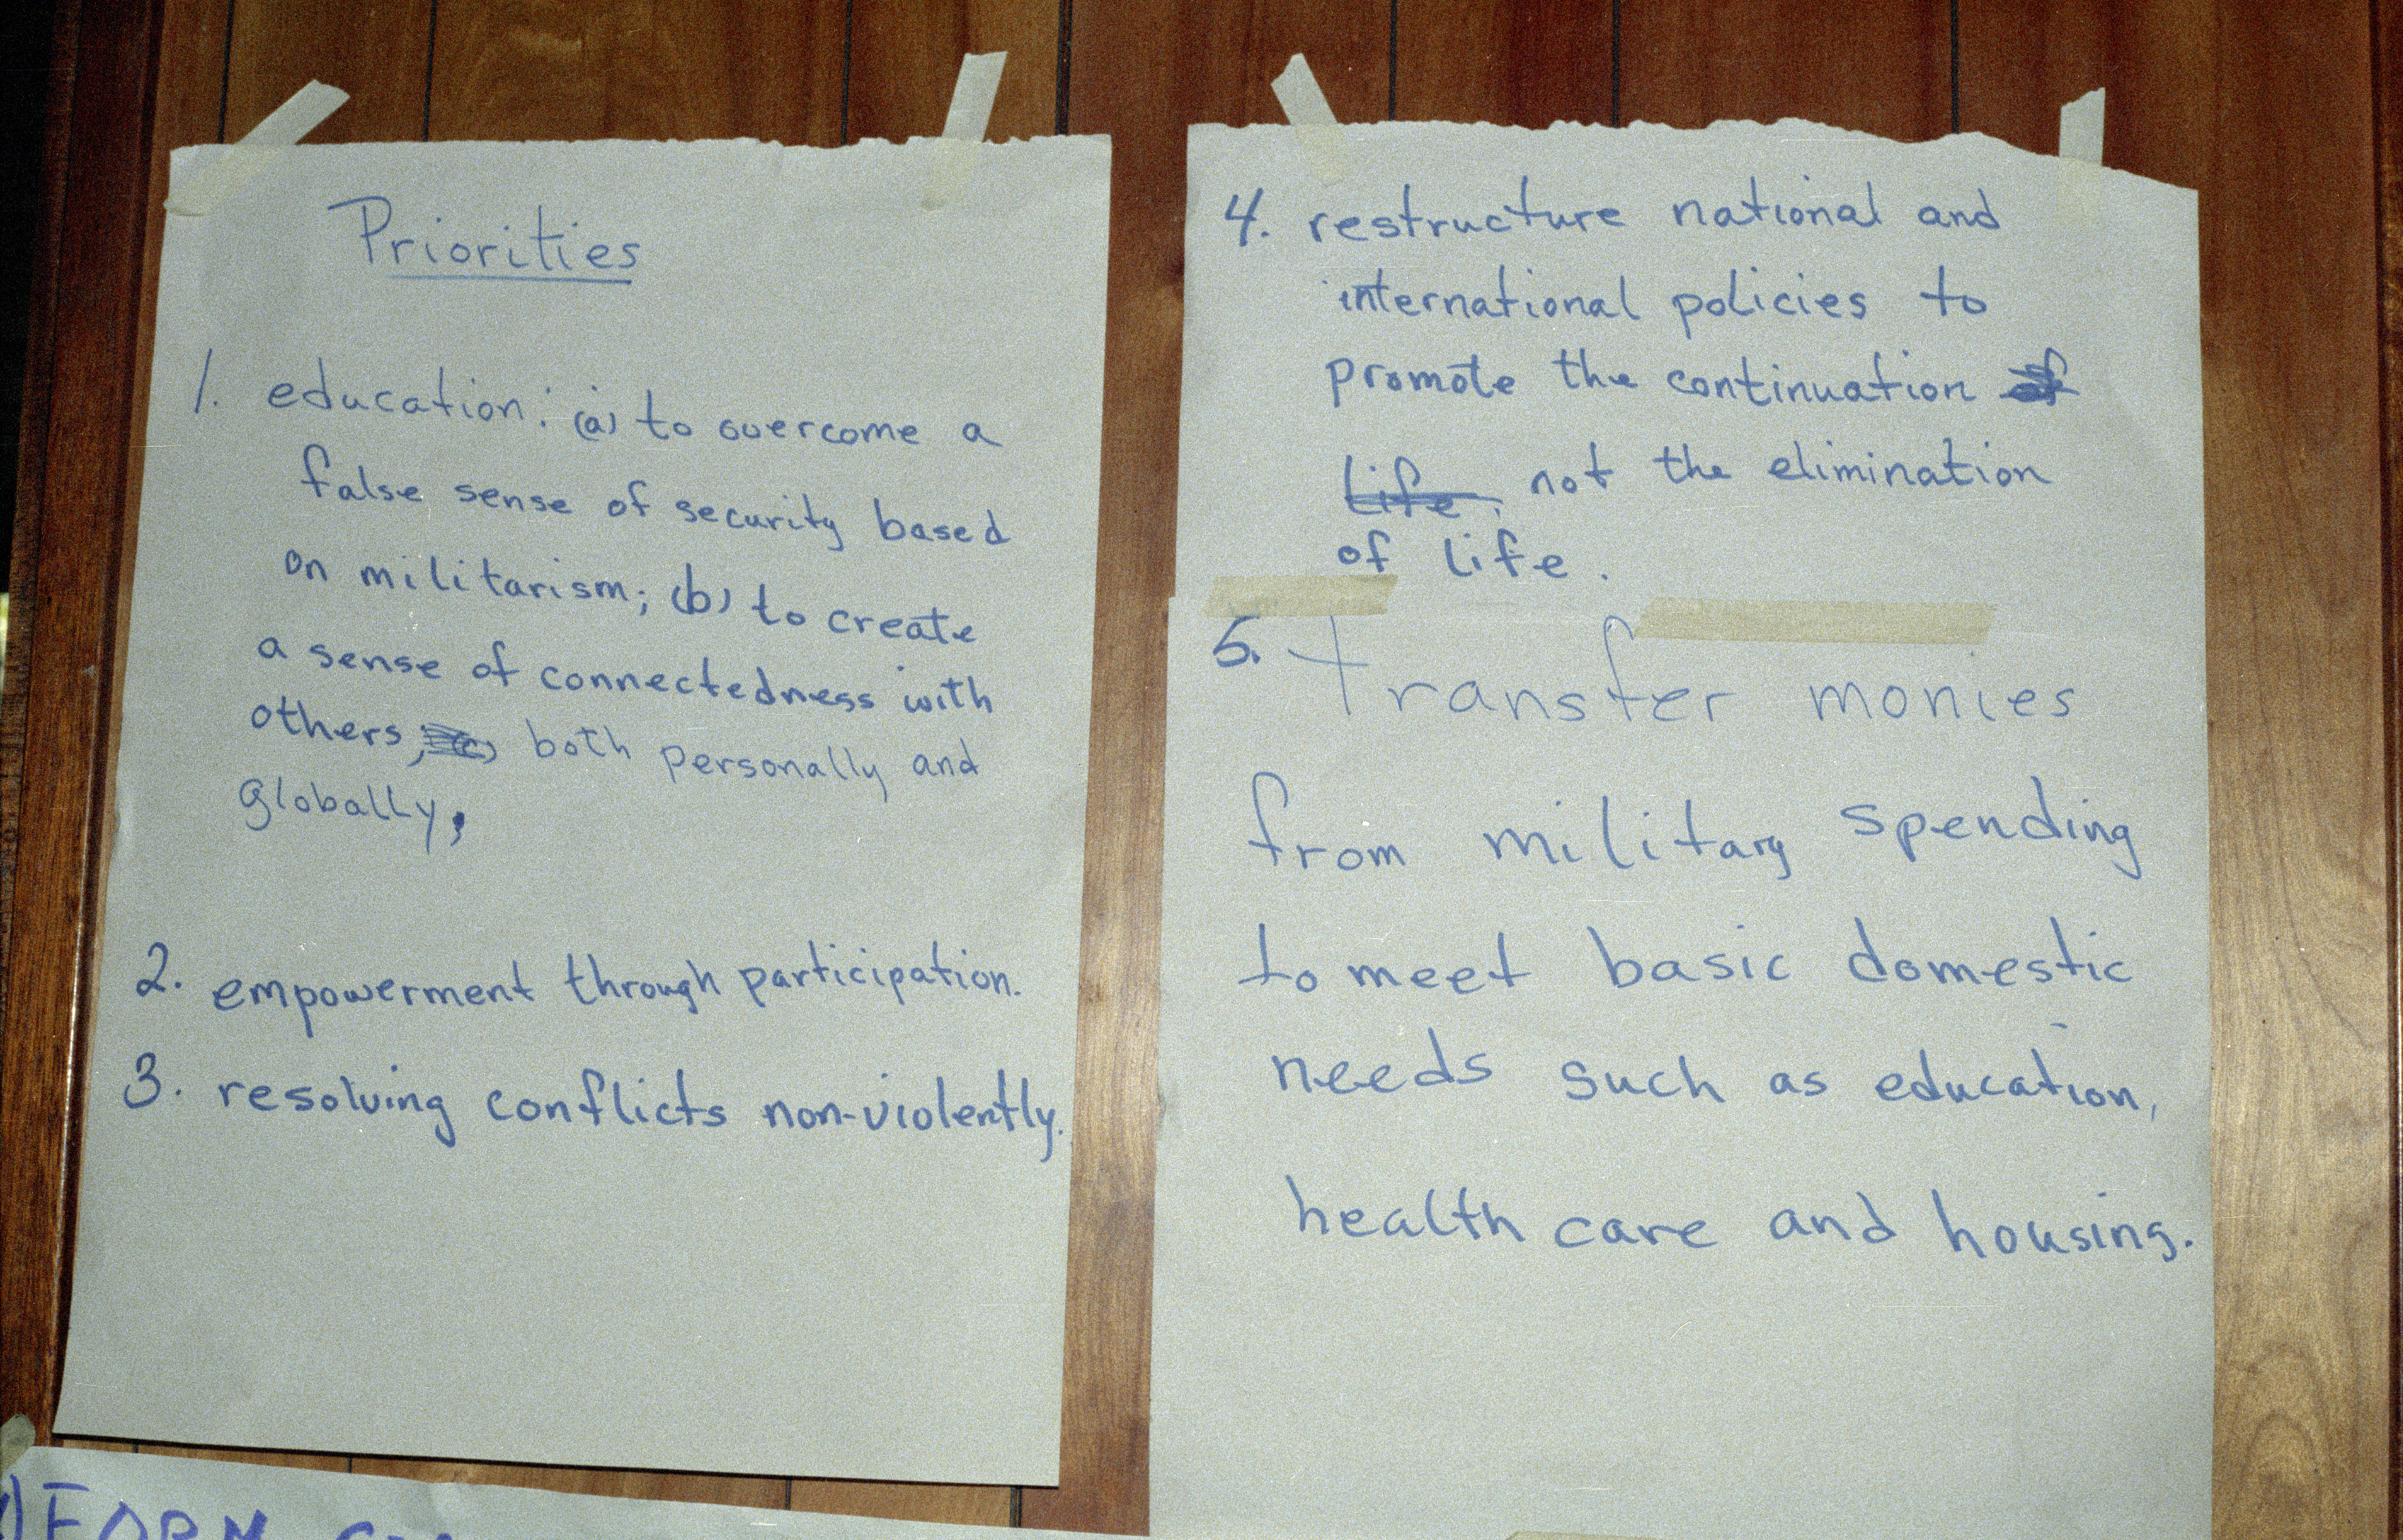 Priorities
1. education: (a) to overcome a
false sense of security based
on militarism; (b) to create
a sense of connectedness with
others, both personally and
globally,
2. empowerment through participation.
3. resolving conflicts non-violently.
4. restructure national and
international policies to
promote the continuation of
life, not the elimination
of life.
5. transfer monies
from military spending
to meet basic domestic
needs such as education,
health care and housing.
1) FORM